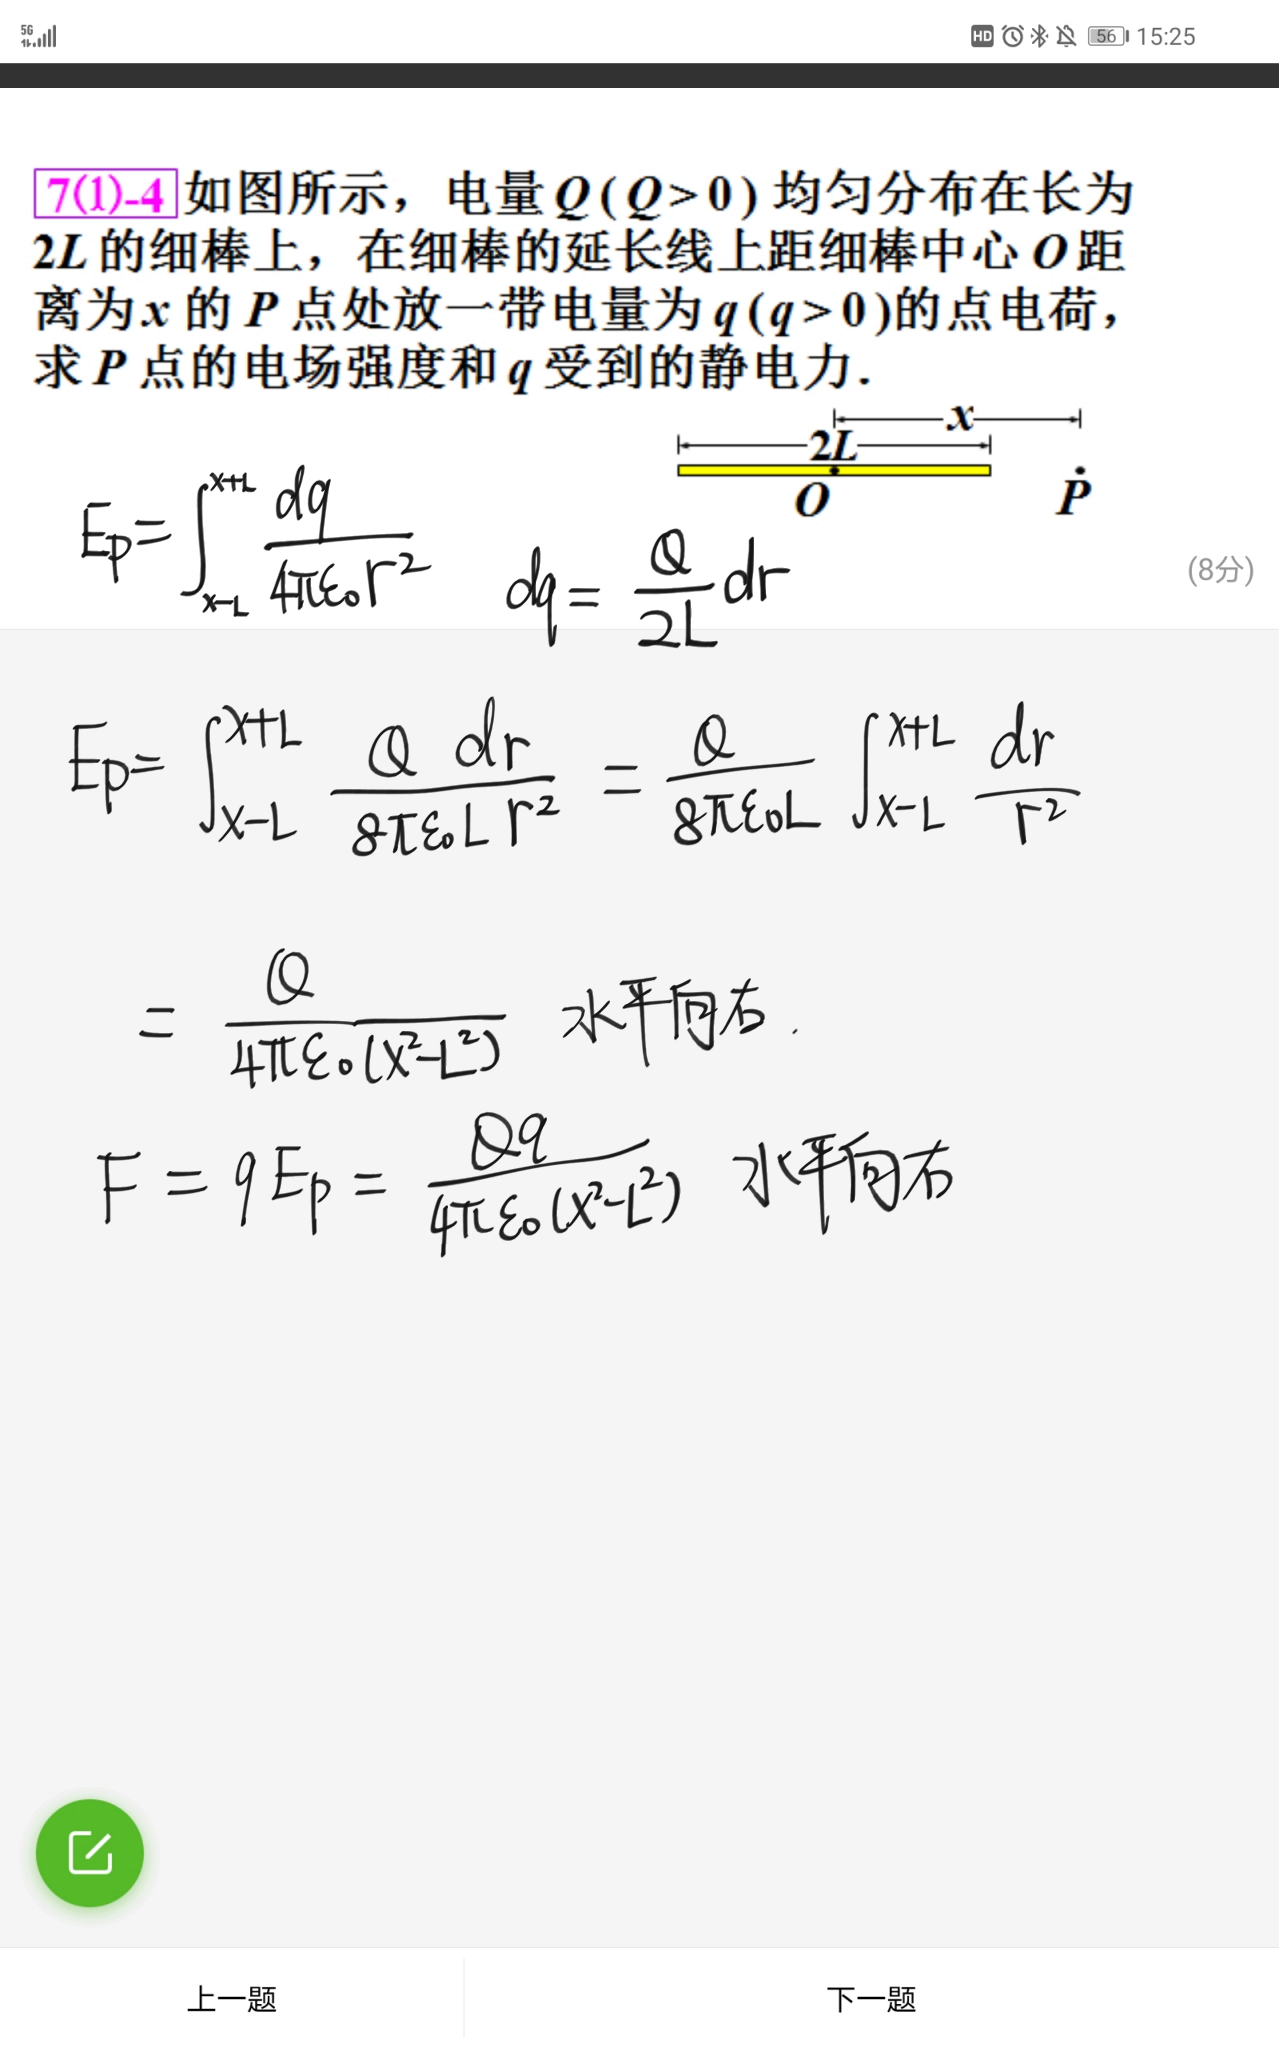 5G HD 56 15:25
7(1)-4 如图所示，电量 Q ( Q > 0 ) 均匀分布在长为
2L 的细棒上，在细棒的延长线上距细棒中心 O 距
离为 x 的 P 点处放一带电量为 q ( q > 0 )的点电荷，
求 P 点的电场强度和 q 受到的静电力．
x
2L
O P
(8分)
Ep = ∫_{x-L}^{x+L} dq / (4πε₀r²)  dq = Q/(2L) dr
Ep = ∫_{x-L}^{x+L} Q dr / (8πε₀L r²) = Q/(8πε₀L) ∫_{x-L}^{x+L} dr/r²
= Q / (4πε₀(x²-L²)) 水平向右.
F = qEp = Qq / (4πε₀(x²-L²)) 水平向右
上一题 下一题